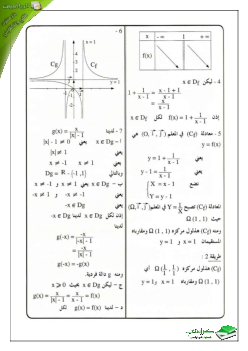 x -∞ 1 +∞
f(x)
4 - ليكن x ∈ Df
1 + 1/(x - 1) = (x - 1 + 1)/(x - 1)
= x/(x - 1)
إذن f(x) = 1 + 1/(x - 1) لكل x ∈ Df
5 - معادلة (Cf) في المعلم (O, i, j) هي
y = f(x)
يعني y = 1 + 1/(x - 1)
يعني y - 1 = 1/(x - 1)
نضع { X = x - 1
Y = y - 1
المعادلة (Cf) تصبح Y = 1/X في المعلم (Ω, i, j)
حيث Ω (1 , 1)
ومنه (Cf) هذلول مركزه Ω (1 , 1) ومقارباه
المستقيمان x = 1 و y = 1
طريقة 2 :
(Cf) هذلول مركزه
Ω (1 , 1) ومقارباه x = 1 و y = 1
6 -
x = 1
Cg
Cf
y = 1
7 - لدينا g(x) = x/(|x| - 1)
أ - x ∈ Dg يعني |x| - 1 ≠ 0
يعني |x| ≠ 1
يعني x ≠ 1 و x ≠ -1
وبالتالي Dg = R - {-1, 1}
ب - x ∈ Dg يعني x ≠ 1 و x ≠ -1
يعني -x ≠ -1 و -x ≠ 1
يعني -x ∈ Dg
إذن لكل x ∈ Dg لدينا -x ∈ Dg
لدينا
g(-x) = -x/(|-x| - 1)
= -x/(|x| - 1)
g(-x) = -g(x)
ومنه g دالة فردية.
ج - ليكن x ∈ Dg بحيث x ≥ 0
g(x) = x/(|x| - 1) = x/(x - 1) = f(x)
د - لدينا g(x) = f(x) لكل